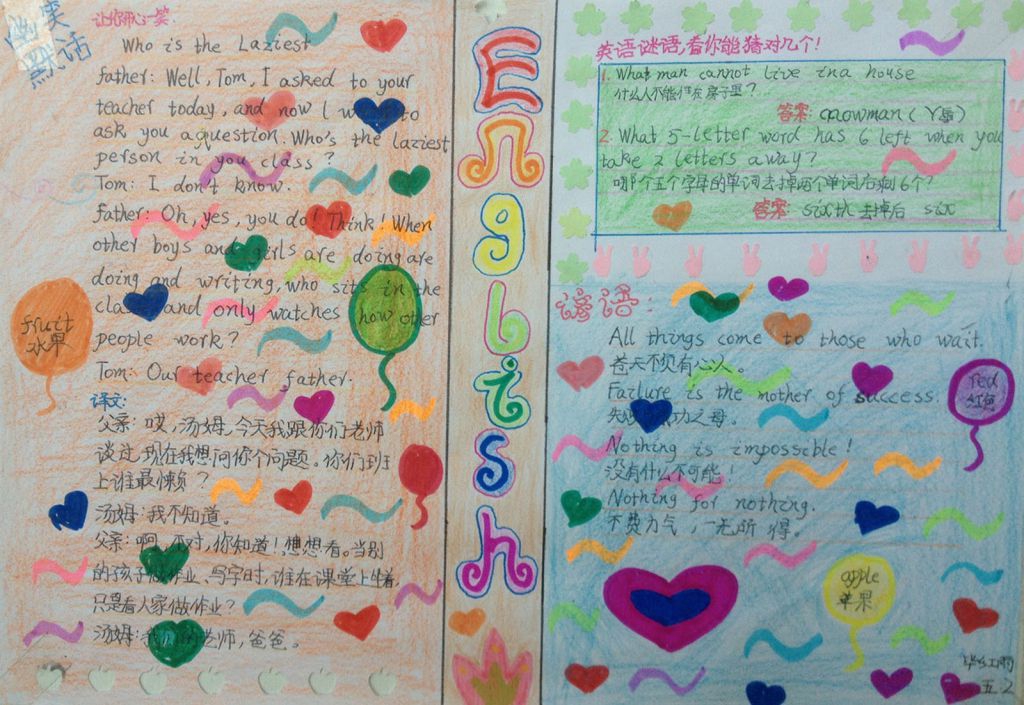 幽默笑话
让你开心一笑
Who is the Laziest
father: Well, Tom, I asked to your
teacher today, and now I w to
ask you a question. Who's the laziest
person in you class?
Tom: I don't know.
father: Oh, yes, you do! Think! When
other boys and girls are doing are
doing and writing, who sits in the
class and only watches how other
people work?
Tom: Our teacher father.
译文:
父亲:哎,汤姆,今天我跟你们老师
谈过,现在我想问你个问题。你们班
上谁最懒?
汤姆:我不知道。
父亲:啊,不对,你知道!想想看。当别
的孩子做作业、写字时,谁在课堂上坐着,
只是看人家做作业?
汤姆:我们的老师,爸爸。
fruit
水果
English
英语谜语,看你能猜对几个!
1. What man cannot live in a house
什么人不能住在房子里?
答案: snowman(
2. What 5-letter word has 6 left when you
take 2 letters away?
哪个五个字母的单词去掉两个单词后剩6个?
答案: sixth 去掉后 six
谚语:
All things come to those who wait.
苍天不负有心人。
Failure is the mother of success.
失败 成功之母。
Nothing is impossible!
没有什么不可能!
Nothing for nothing.
不费力气,一无所得。
red
红色
apple
苹果
五.2